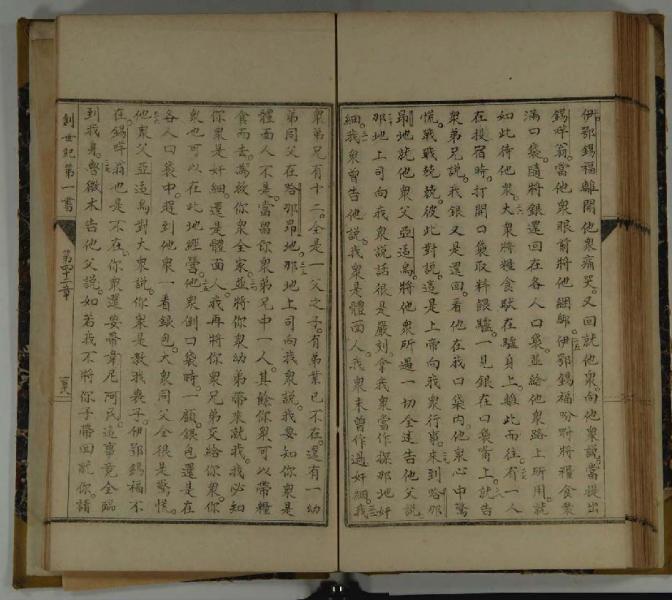 伊鄂錫福離開他衆痛哭。又回就他衆。向他衆說。當提出
錫咩翁。當他衆眼前將他綑綁。伊鄂錫福吩咐將糧食裝
滿口袋。隨將銀還回在各人口袋。並給他衆路上所用。就
如此待他衆。大衆將糧食馱在驢身上。離此而往。有一人
在投宿時。打開口袋取料餵驢。一見銀在口袋嘴上。就告
衆弟兄說。我銀又是還回。看他在我口袋內。他衆心中驚
慌。戰戰兢兢。彼此對說。這是上帝向我衆行事。來到哈那
昴地。就他衆父亞适烏。將他衆所遇一切全述告他父說
那地上司向我衆說話很是嚴剌。拿我衆當作探那地奸
細。我衆曾告他說。我衆是體面人。我衆未曾作過奸細。我
衆弟兄有十二。全是一父之子。有弟業已不在。還有一幼
弟同父在哈那昴地。那地上司向我衆說。我要知你衆是
體面人不是。當留你衆弟兄中一人。其餘你衆可以帶糧
食而去。為救你衆全家。並將你衆幼弟帶來就我。我必知
你衆是奸細。還是體面人。我再將你衆兄弟交給你衆。你
衆也可以在此地經營。他衆倒口袋時。一顧銀包還是在
各人口袋中。遲到他衆一看銀包。大衆同父全很是驚慌。
他衆父亞适烏對大衆說。你衆是敎我喪子。伊鄂錫福不
在。錫咩翁也是不在。你衆還要帶韋尼阿民。這事竟全臨
到我身。魯微木告他父說。如若我不將你子帶回就你。請
創世紀第一書 第四十二章